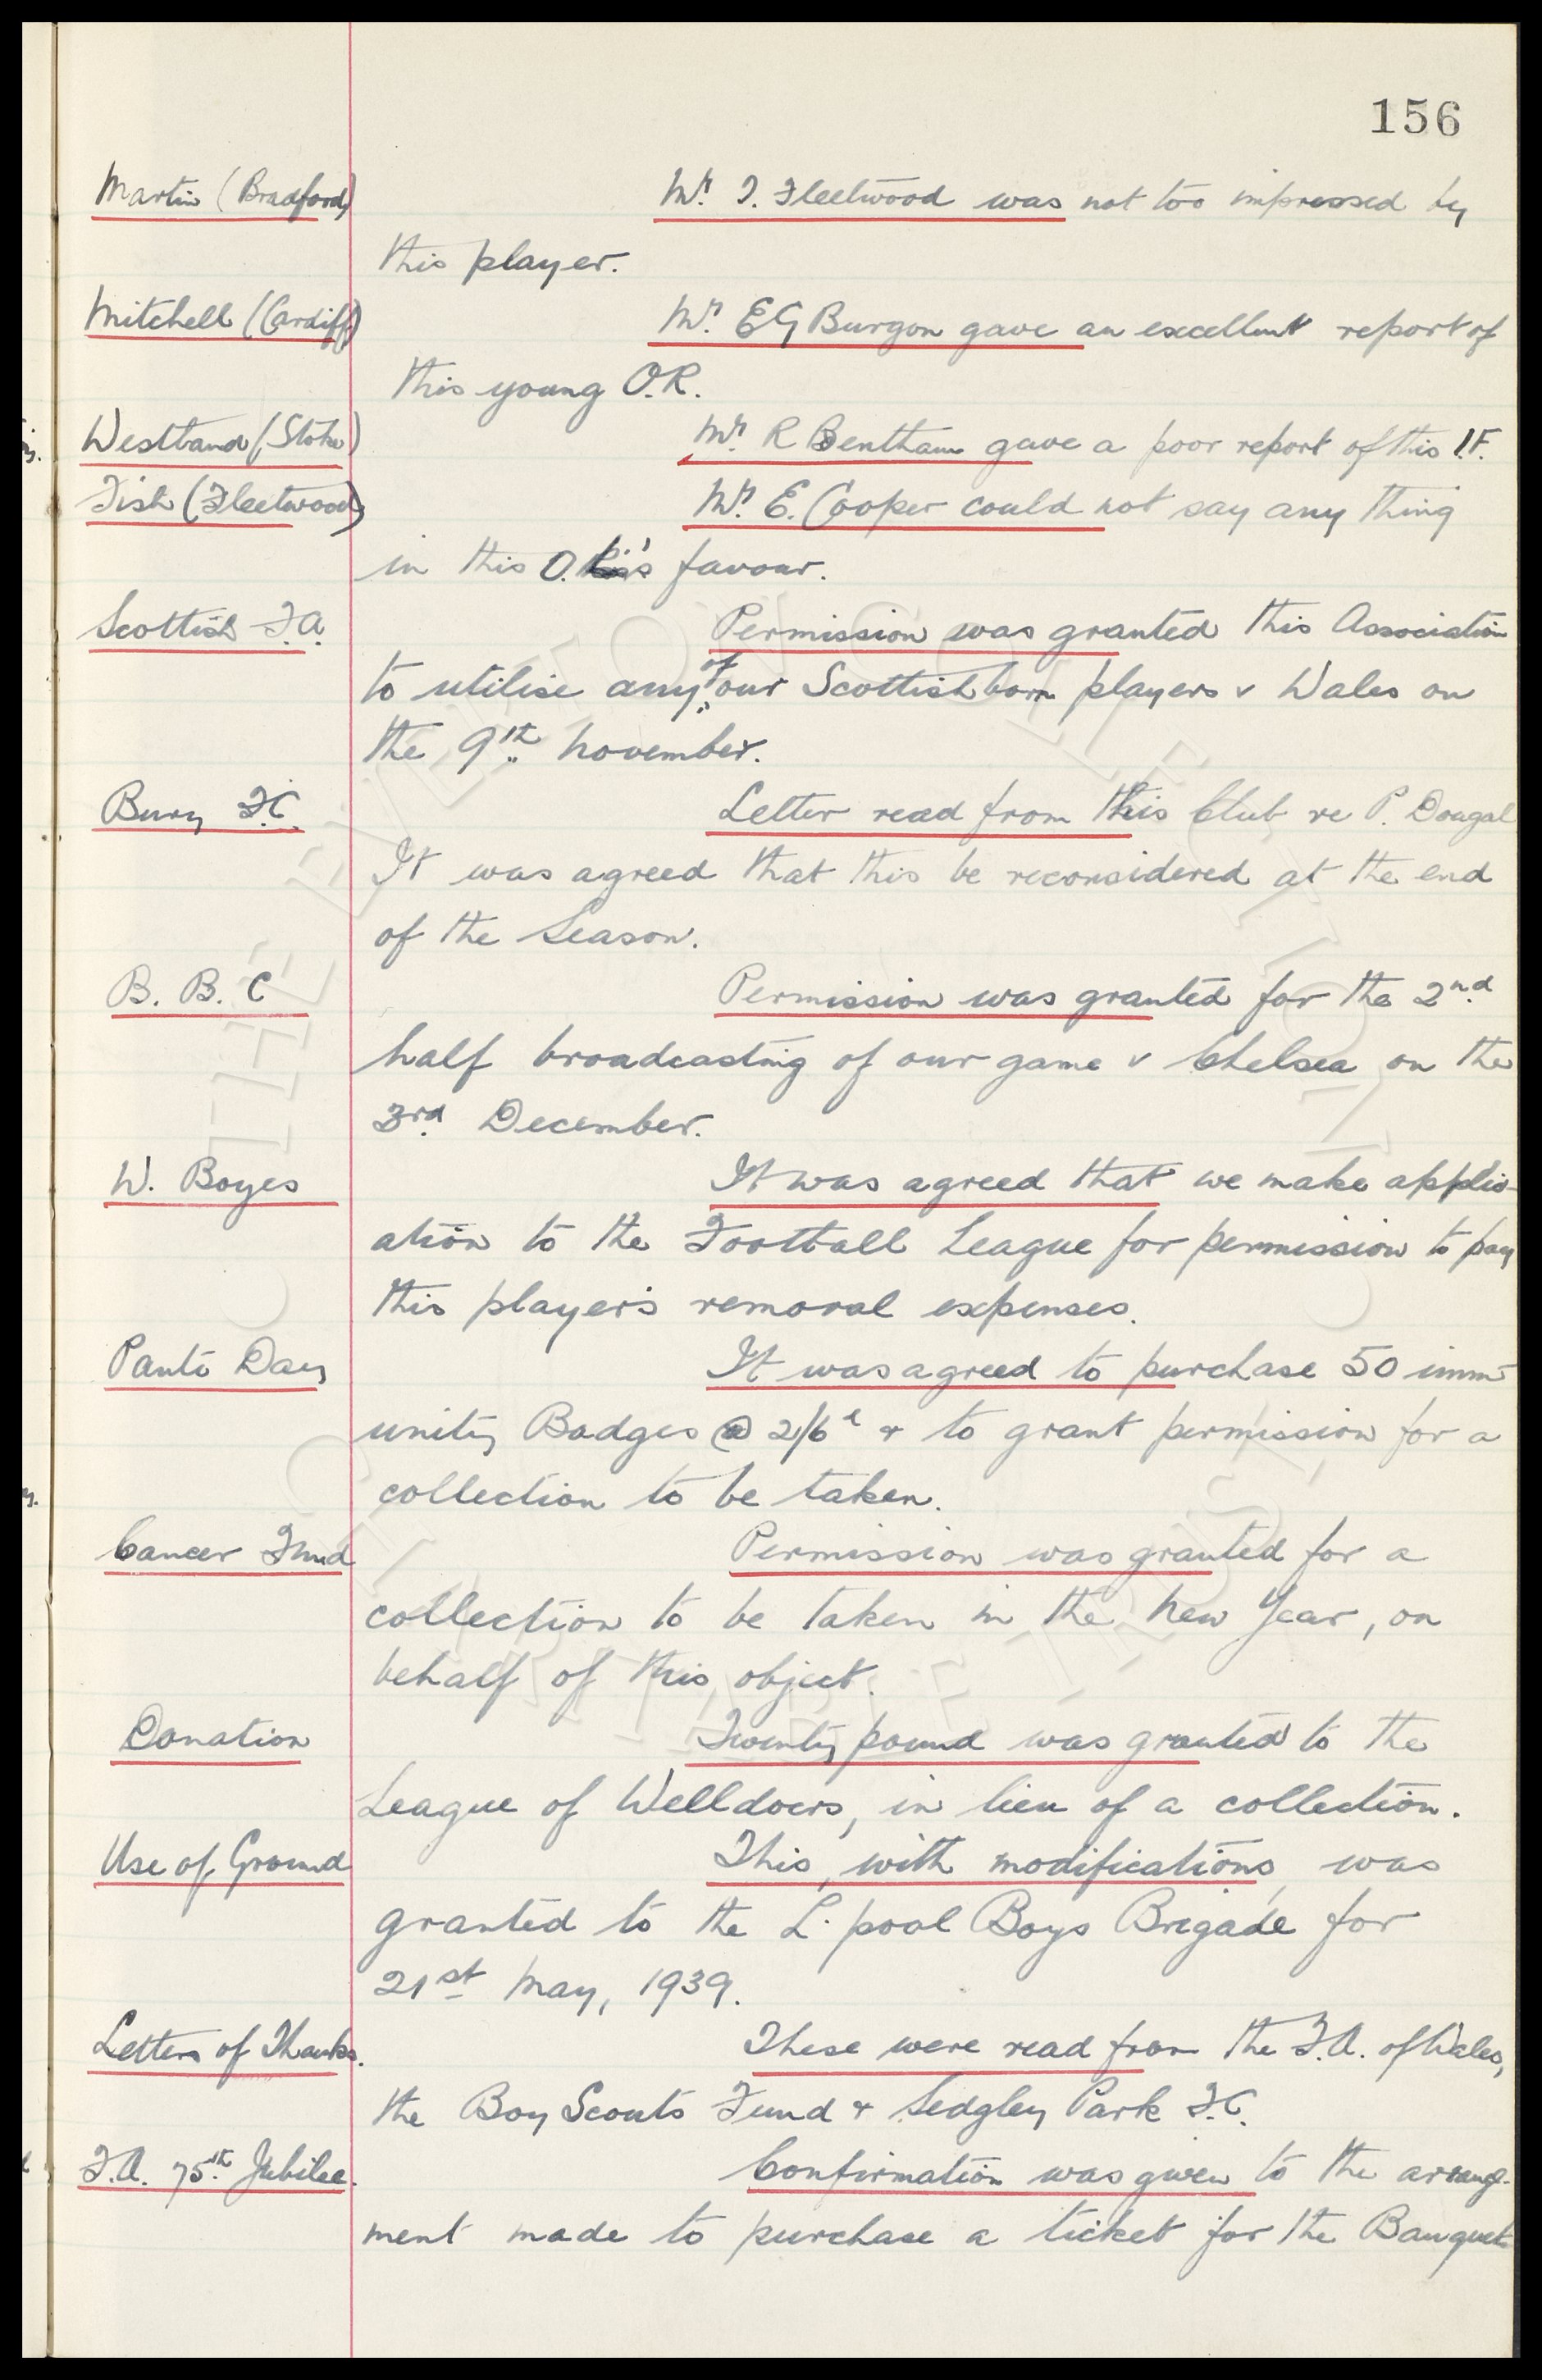 156
Martin (Bradford) Mr. T. Fleetwood was not too impressed by
this player.
Mitchell (Cardiff) Mr. E G Burgon gave an excellent report of
this young O.R.
Westland (Stoke) Mr. R Bentham gave a poor report of this I.F.
Fish (Fleetwood) Mr. E. Cooper could not say any thing
in this O. favour.
Scottish F.A. Permission was granted this Association
to utilise any of our Scottish born players v Wales on
the 9th November.
Bury F.C. Letter read from this Club re P. Dougal
It was agreed that this be reconsidered at the end
of the Season.
B. B. C Permission was granted for the 2nd
half broadcasting of our game v Chelsea on the
3rd December.
W. Boyes It was agreed that we make applic-
ation to the Football League for permission to pay
this player's removal expenses.
Panto Day It was agreed to purchase 50 imm-
unity Badges @ 2/6 & to grant permission for a
collection to be taken.
Cancer Fund Permission was granted for a
collection to be taken in the New Year, on
behalf of this object.
Donation Twenty pound was granted to the
League of Welldoers, in lieu of a collection.
Use of Ground This, with modifications, was
granted to the L'pool Boys Brigade for
21st May, 1939.
Letters of Thanks. These were read from the F.A. of Wales,
the Boy Scouts Fund & Sedgley Park F.C.
F.A. 75th Jubilee. Confirmation was given to the arrange-
ment made to purchase a ticket for the Banquet